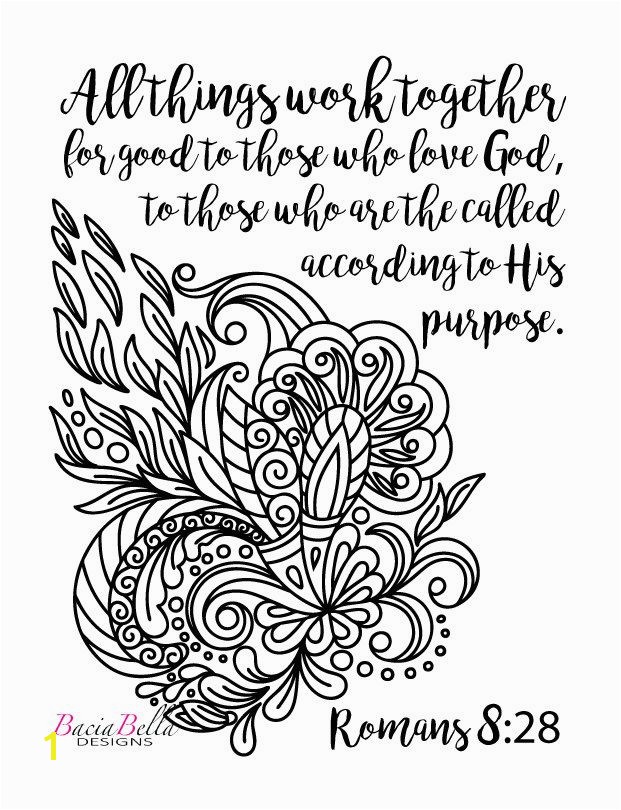 All things work together
for good to those who love God,
to those who are the called
according to His
purpose.
BaciaBella
DESIGNS
1
Romans 8:28